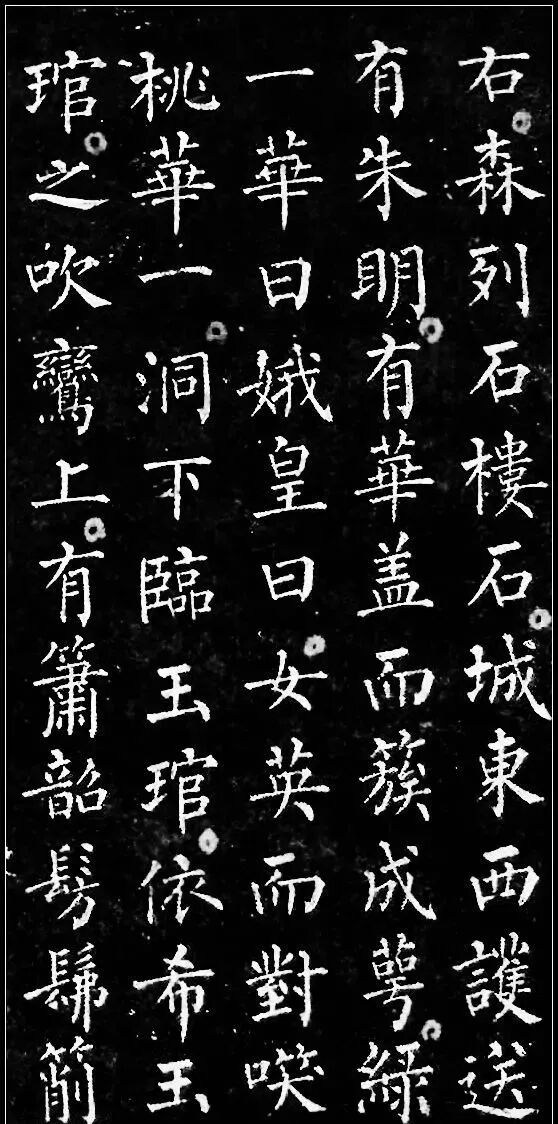 右森列石樓石城東西護送
有朱明有華盖而簇成萼綠
一華曰娥皇曰女英而對噗
桃華一洞下臨玉琯依希玉
琯之吹鸞上有簫韶髣髴簫